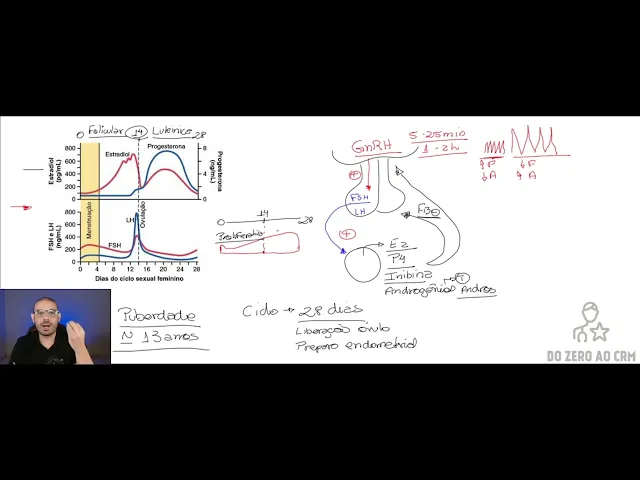 0 Folicular 14 Luteínica 28
Estradiol (pg/mL)
800
600
400
200
0
Estradiol
Progesterona
8
6
4
2
0
Progesterona (ng/mL)
Menstruação
Ovulação
FSH e LH (ng/mL)
800
600
400
200
0
LH
FSH
0 2 4 6 8 10 12 14 16 18 20 22 24 26 28
Dias do ciclo sexual feminino
0
14
28
GnRH
5-25min
1-2h
↑F
↓A
↓F
↑A
+
FSH
LH
+
FB⊖
E2
P4
Inibina
Androgênios
Andros
Puberdade
N 13 anos
Ciclo → 28 dias
Liberação óvulo
Preparo endometrial
DO ZERO AO CRM